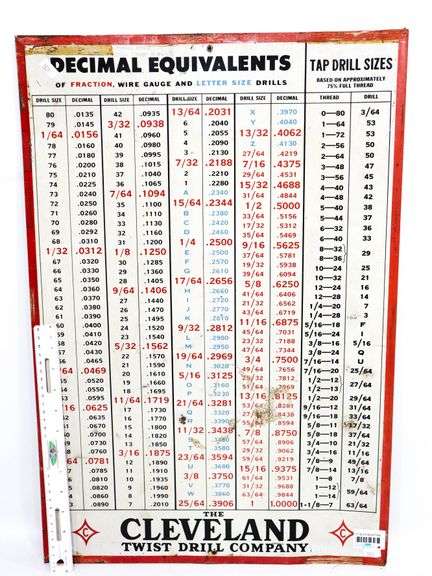 DECIMAL EQUIVALENTS
OF FRACTION, WIRE GAUGE AND LETTER SIZE DRILLS
DRILL SIZE DECIMAL
80 .0135
79 .0145
1/64 .0156
78 .0160
77 .0180
76 .0200
75 .0210
74 .0225
73 .0240
72 .0250
71 .0260
70 .0280
69 .0292
68 .0310
1/32 .0312
67 .0320
66 .0330
65 .0350
64 .0360
63 .0370
62 .0380
61 .0390
60 .0400
.0410
.0420
.0430
.0465
/64 .0469
.0520
.0550
.0595
16 .0625
.0635
.0670
.0700
.0730
.0760
/64 .0781
.0785
.0810
.0820
.0860
.0890
DRILL SIZE DECIMAL
42 .0935
3/32 .0938
41 .0960
40 .0980
39 .0995
38 .1015
37 .1040
36 .1065
7/64 .1094
35 .1100
34 .1110
33 .1130
32 .1160
31 .1200
1/8 .1250
30 .1285
29 .1360
28 .1405
9/64 .1406
27 .1440
26 .1470
25 .1495
24 .1520
23 .1540
5/32 .1562
22 .1570
21 .1590
20 .1610
19 .1660
18 .1695
11/64 .1719
17 .1730
16 .1770
15 .1800
14 .1820
13 .1850
3/16 .1875
12 .1890
11 .1910
10 .1935
9 .1960
8 .1990
7 .2010
DRILL SIZE DECIMAL
13/64 .2031
6 .2040
5 .2055
4 .2090
3 .2130
7/32 .2188
2 .2210
1 .2280
A .2340
15/64 .2344
B .2380
C .2420
D .2460
1/4 .2500
E .2500
F .2570
G .2610
17/64 .2656
H .2660
I .2720
J .2770
K .2810
9/32 .2812
L .2900
M .2950
19/64 .2969
N .3020
5/16 .3125
O .3160
P .3230
21/64 .3281
.3390
11/32 .3438
.3480
T .3580
23/64 .3594
U .3680
3/8 .3750
V .3770
W .3860
25/64 .3906
DRILL SIZE DECIMAL
X .3970
Y .4040
13/32 .4062
Z .4130
27/64 .4219
7/16 .4375
29/64 .4531
15/32 .4688
31/64 .4844
1/2 .5000
33/64 .5156
17/32 .5312
35/64 .5469
9/16 .5625
37/64 .5781
19/32 .5938
39/64 .6094
5/8 .6250
41/64 .6406
21/32 .6562
43/64 .6719
11/16 .6875
45/64 .7031
23/32 .7188
47/64 .7344
3/4 .7500
49/64 .7656
25/32 .7812
51/64 .7969
13/16 .8125
.8281
.8438
.8594
.8750
57/64 .8906
29/32 .9062
59/64 .9219
15/16 .9375
61/64 .9531
31/32 .9688
63/64 .9844
1 1.0000
TAP DRILL SIZES
BASED ON APPROXIMATELY
75% FULL THREAD
THREAD DRILL
0—80 3/64
1—64 53
1—72 53
2—56 50
2—64 50
3—48 47
3—56 45
4—40 43
4—48 42
5—40 38
5—44 37
6—32 36
6—40 33
8—32 29
8—36
10—24 25
10—32 21
12—24 16
12—28 14
1/4—20 7
1/4—28 3
5/16—18 F
5/16—24 I
3/8—16 5/16
3/8—24 Q
7/16—14 U
7/16—20 25/64
1/2—13 27/64
1/2—20 29/64
9/16—12 31/64
9/16—18 33/64
5/8—11 17/32
5/8—18 37/64
3/4—10 21/32
3/4—16 11/16
7/8—9 49/64
7/8—14 13/16
1—8 7/8
1—14 59/64
1-1/8—7 63/64
THE
CLEVELAND
TWIST DRILL COMPANY